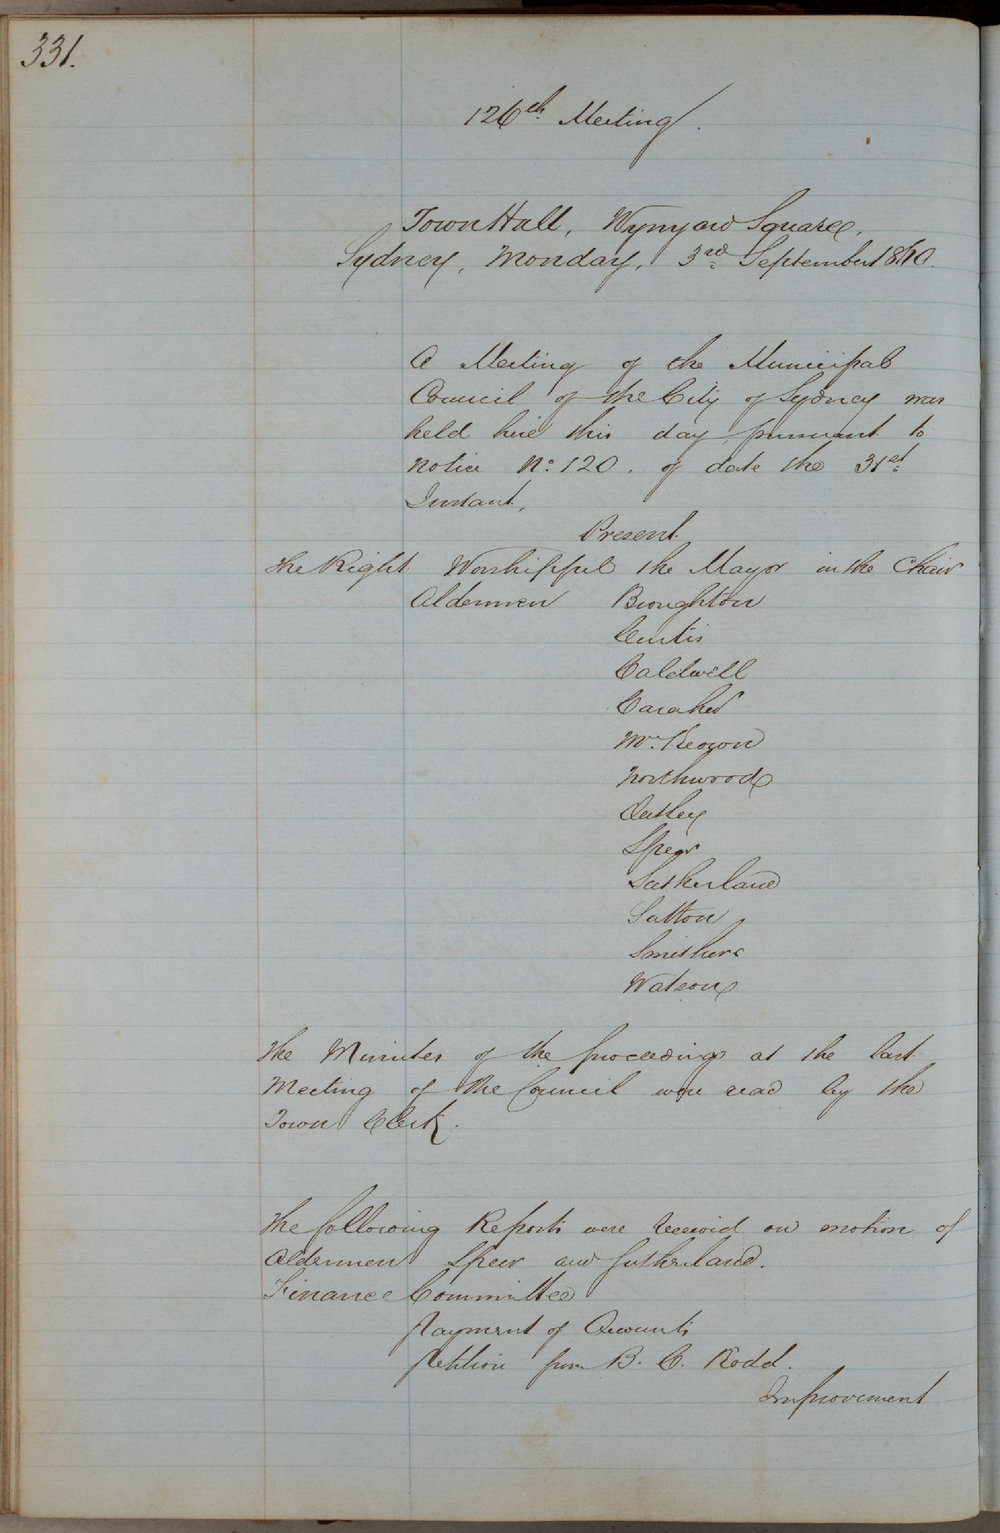 331.
126th Meeting.
Town Hall, Wynyard Square,
Sydney, Monday, 3rd September 1860.
A Meeting of the Municipal
Council of the City of Sydney was
held here this day pursuant to
notice No. 120. of date the 31st
Instant,
Present
The Right Worshipful the Mayor in the Chair
Aldermen Broughton
Curtis
Caldwell
Caraher
McKeown
Northwood
Oatley
Speer
Sutherland
Sutton
Smithers
Watson
The Minutes of the proceedings at the last
Meeting of the Council were read by the
Town Clerk.
The following Reports were received on motion of
Aldermen Speer and Sutherland.
Finance Committee
Payment of Accounts
Petition from B. C. Rodd.
Improvement